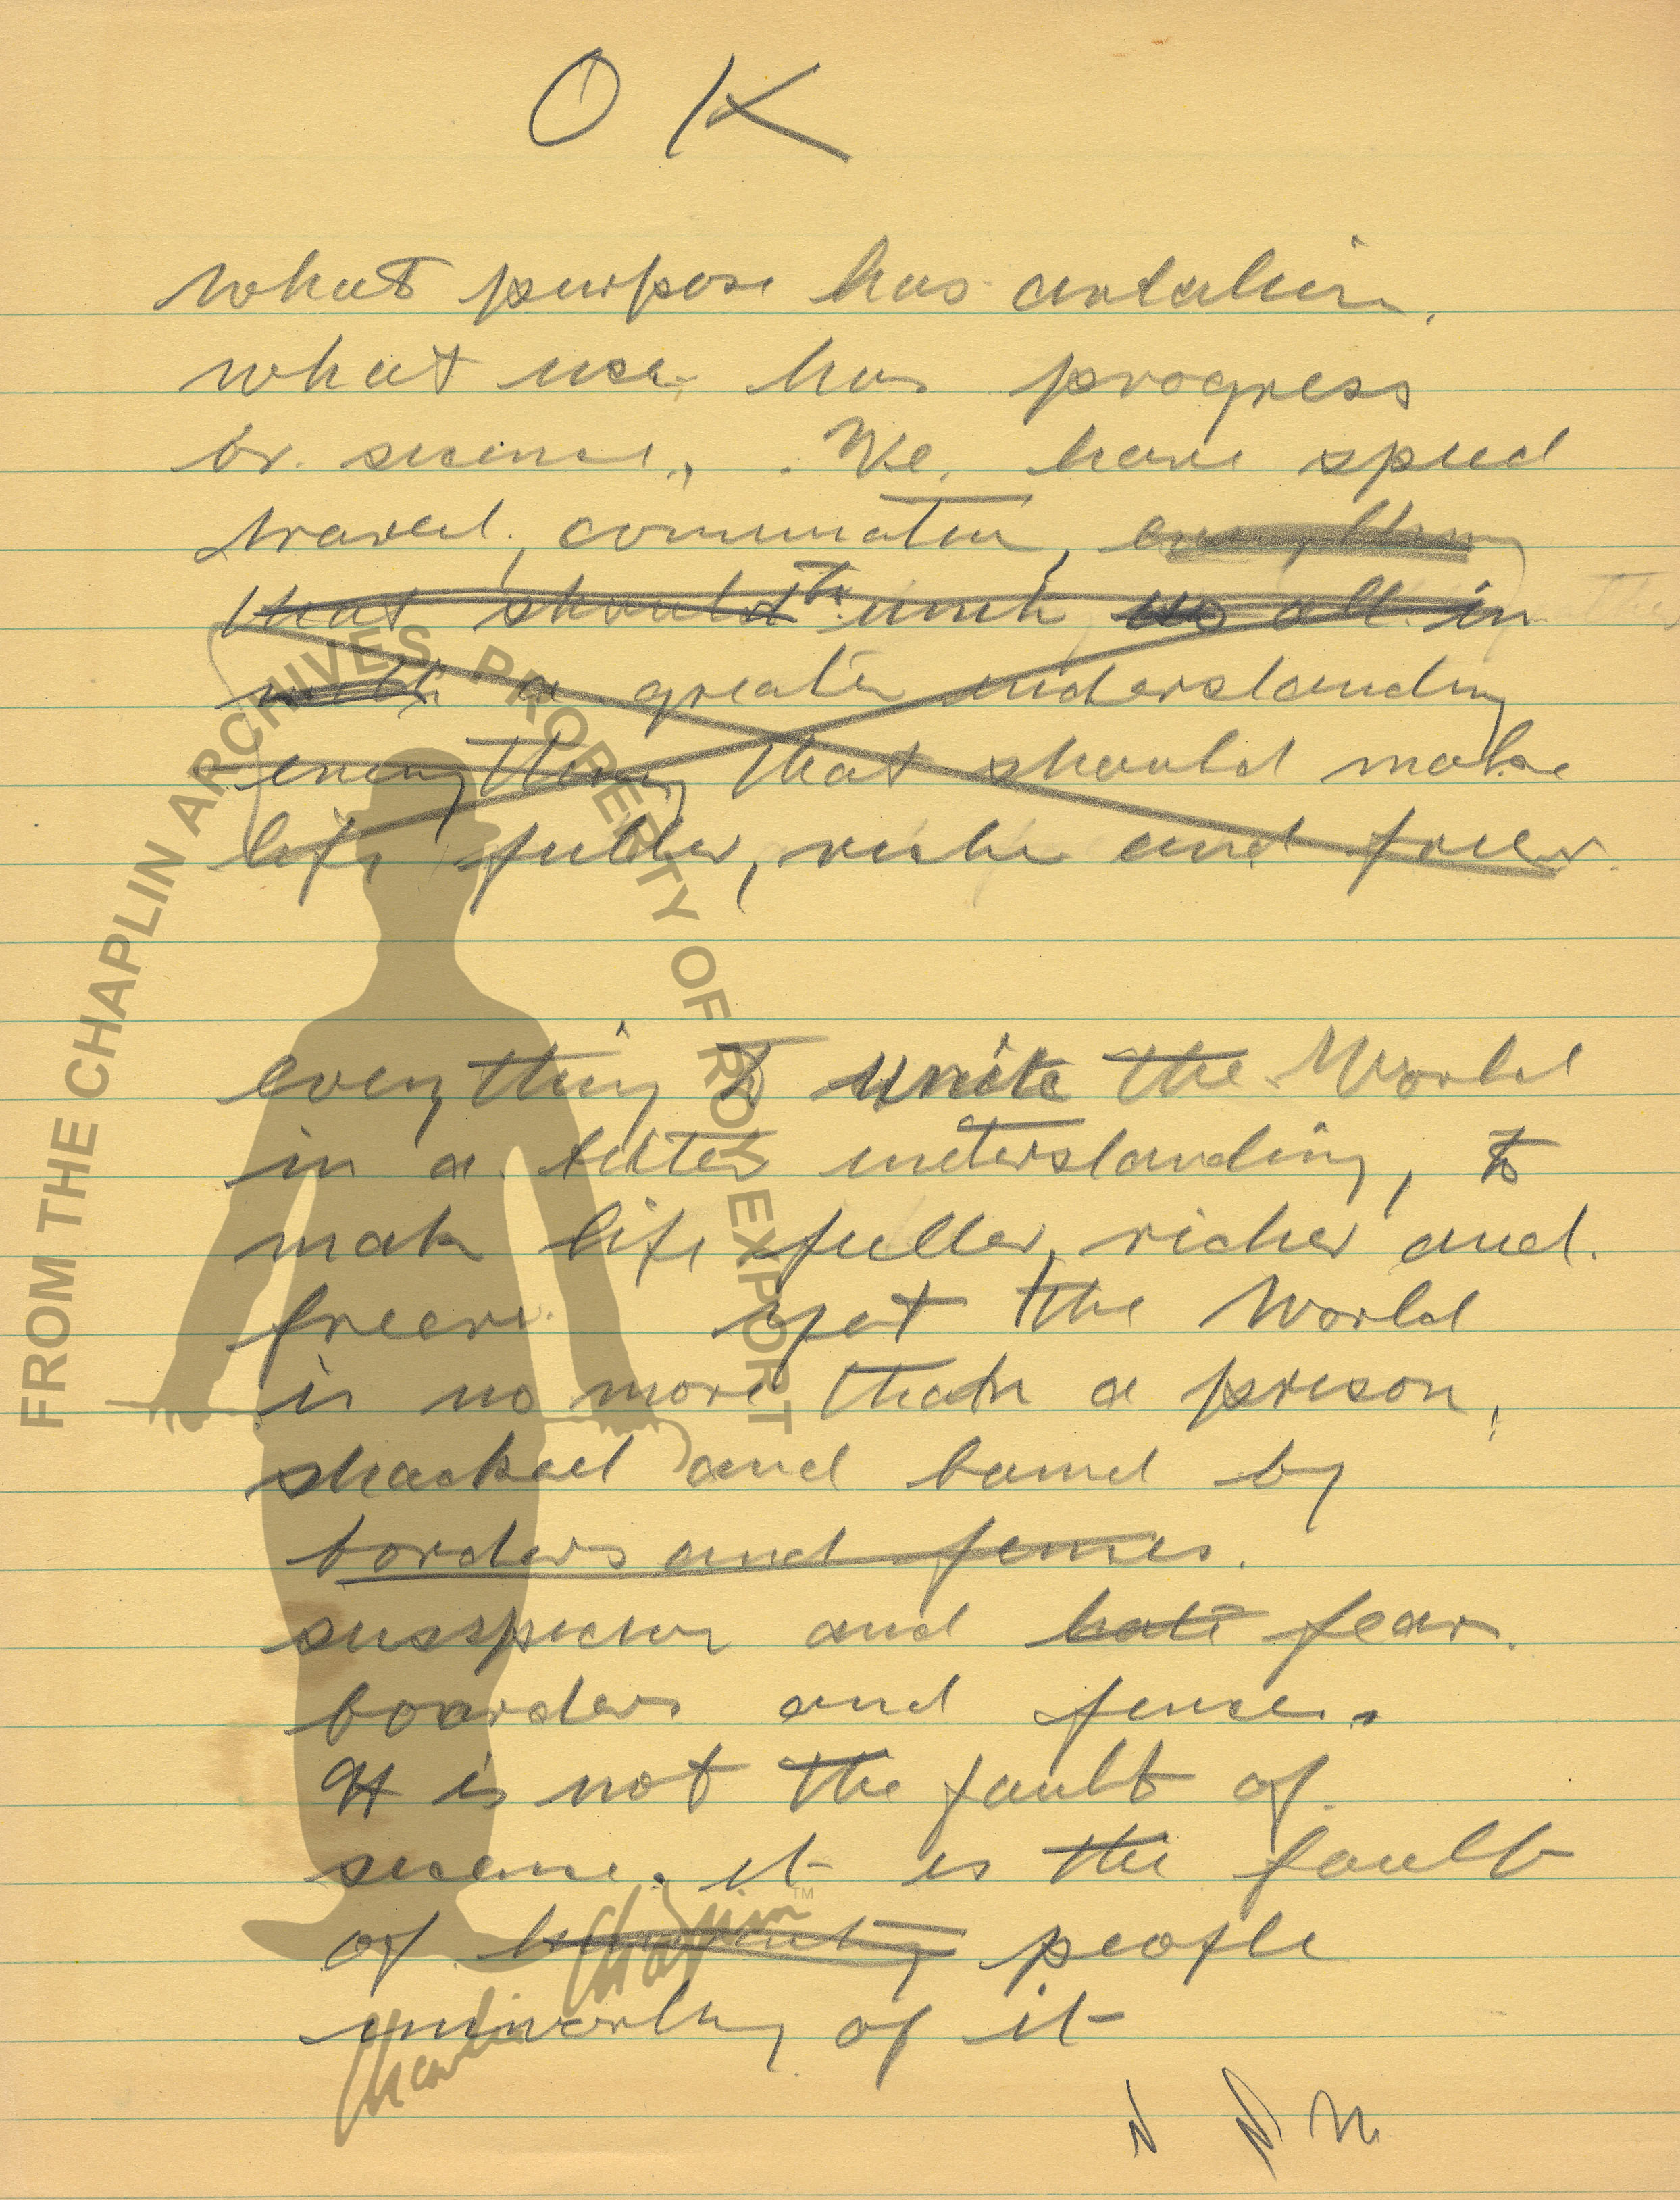 O K
what purpose has
what use has progress
or science, . We have speed
travel, commution, everything
that should to unite us all in
with a greater understanding
everything that should make
life fuller, richer and freer.
everything to unite the World
in a better understanding, to
make life fuller, richer and
freer. yet the World
is no more than a prison,
shackled and bound by
borders and fences.
susspicion and hate fear.
boarders and fences.
It is not the fault of
science. it is the fault
of humanity people
unworthy of it
FROM THE CHAPLIN ARCHIVES PROPERTY OF ROY EXPORT
Charlie Chaplin ™